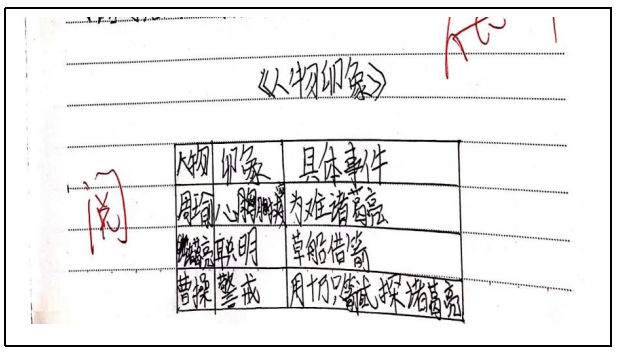 《人物印象》
人物 印象 具体事件
周瑜 心胸 为难诸葛亮
诸葛亮 聪明 草船借箭
曹操 警戒 用十万只箭试探诸葛亮
阅